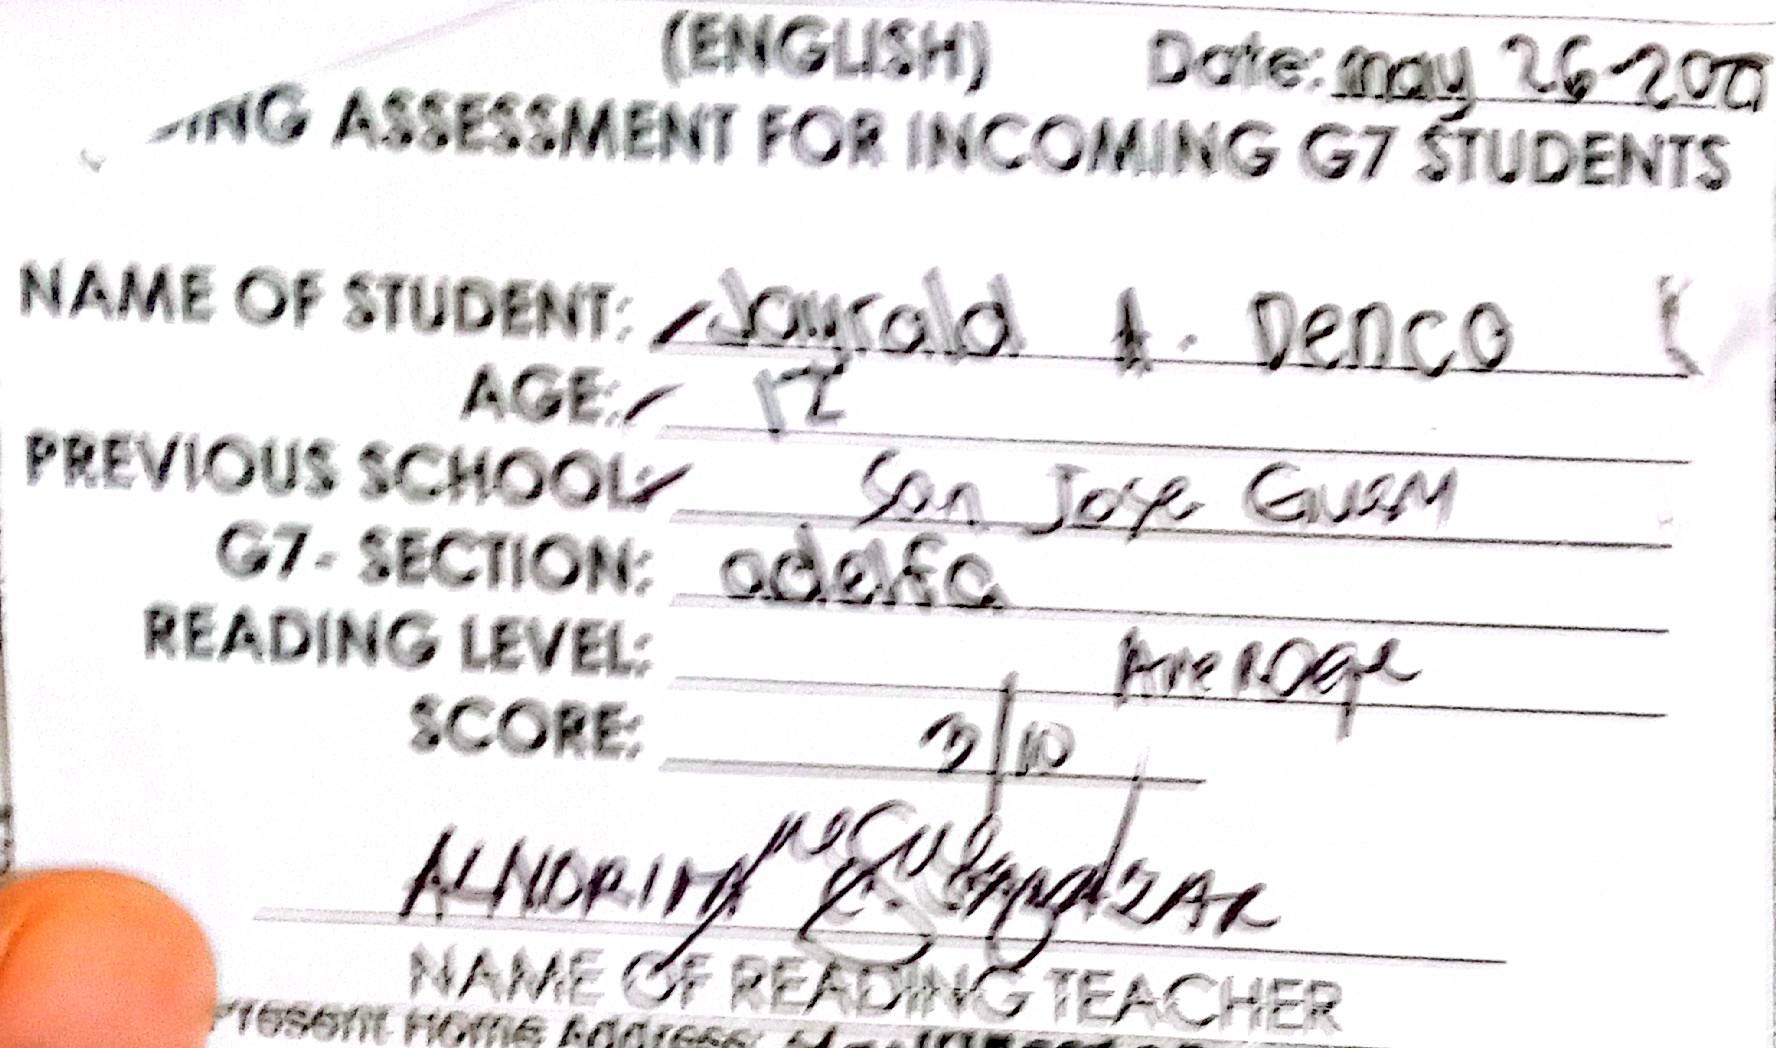 (ENGLISH) Date: may 26-20
ING ASSESSMENT FOR INCOMING G7 STUDENTS
NAME OF STUDENT: Jayrald A. Denco
AGE: 12
PREVIOUS SCHOOL: San Jose Gusu
G7- SECTION: adelfa
READING LEVEL: Average
SCORE: 3/10
ALNDRIM
NAME OF READING TEACHER
Present Home Address: